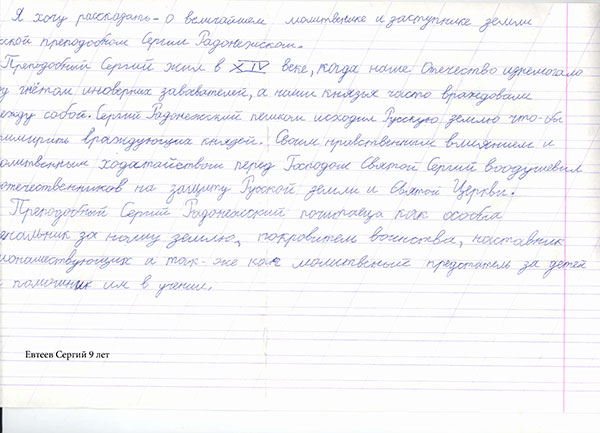 Я хочу рассказать - о величайшем молитвенике и заступнике земли
ской преподобном Сергии Радонежском.
Преподобний Сергий жил в XIV веке, когда наше Отечество изнемогало
гнётом иноверних завоевателей, а наши князья часто враждовали
жду собой. Сергий Радонежский пешком исходил Русскую землю что-бы
имирить враждующих князей. Своим нравственным влиянием и
олитвенным ходатайством перед Господом Святой Сергий воодушевил
отечественников на защиту Русской земли и Святой Церкви.
Преподобный Сергий Радонежский почитаеца как особва
чальник за нашу землю, покровитель воинства, наставник
онашествующих а так-же как молитвеный предстатель за детей
помошник им в учении.
Евтеев Сергий 9 лет